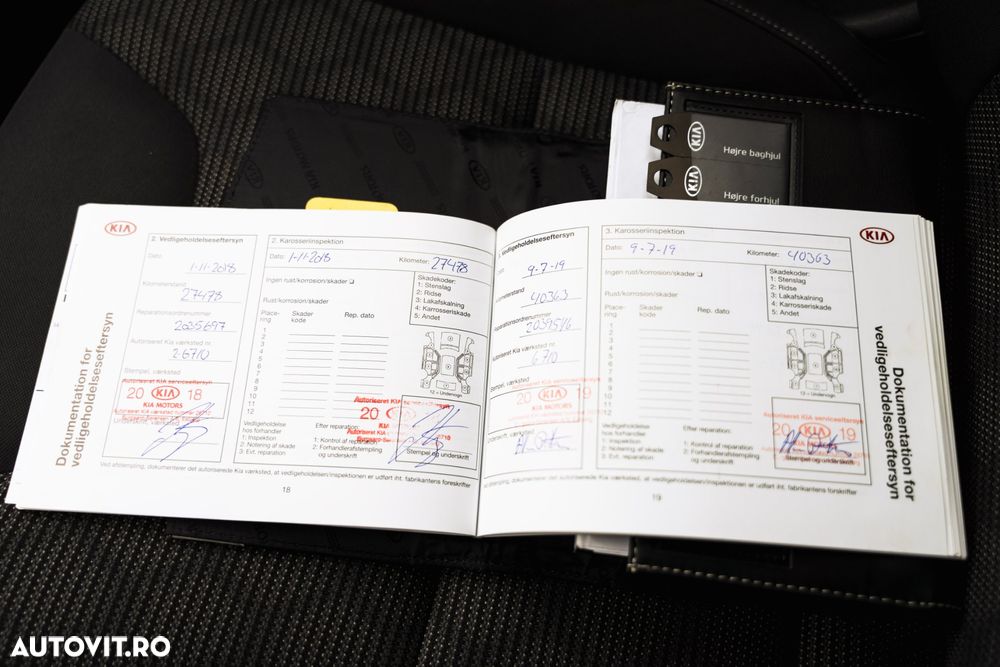 KIA
Højre baghjul
KIA
Højre forhjul
KIA
Dokumentation for
vedligeholdelseseftersyn
2. Vedligeholdelseseftersyn
Dato:
1-11-2018
Kilometerstand
27478
Reparationsordrenummer
2035697
Autoriseret Kia værksted nr.
26710
Stempel, værksted
Autoriseret KIA serviceeftersyn
20 KIA 18
KIA MOTORS
Underskrift, værksted
2. Karosseriinspektion
Dato: 1-11-2018
Kilometer: 27478
Ingen rust/korrosion/skader
Rust/korrosion/skader
Skadekoder:
1: Stenslag
2: Ridse
3: Lakafskalning
4: Karrosseriskade
5: Andet
Place-
ring
Skader
kode
Rep. dato
1
2
3
4
5
6
7
8
9
10
11
12
12 = Undervogn
20 KIA
Vedligeholdelse
hos forhandler
1: Inspektion
2: Notering af skade
3: Evt. reparation
Efter reparation:
1: Kontrol af reparation
2: Forhandlerafstempling
og underskrift
Stempel og underskrift
Ved afstempling, dokumenterer det autoriserede Kia værksted, at vedligeholdelsen/inspektionen er udført iht. fabrikantens forskrifter
18
3. Vedligeholdelseseftersyn
Dato:
9-7-19
Kilometerstand
40363
Reparationsordrenummer
Autoriseret Kia værksted nr.
6710
Stempel, værksted
Autoriseret KIA serviceeftersyn
20 KIA 19
KIA MOTORS
Underskrift, værksted
3. Karosseriinspektion
Dato: 9-7-19
Kilometer: 40363
Ingen rust/korrosion/skader
Rust/korrosion/skader
Skadekoder:
1: Stenslag
2: Ridse
3: Lakafskalning
4: Karrosseriskade
5: Andet
Place-
ring
Skader
kode
Rep. dato
1
2
3
4
5
6
7
8
9
10
11
12
12 = Undervogn
Autoriseret KIA serviceeftersyn
20 KIA 19
Vedligeholdelse
hos forhandler
1: Inspektion
2: Notering af skade
3: Evt. reparation
Efter reparation:
1: Kontrol af reparation
2: Forhandlerafstempling
og underskrift
Stempel og underskrift
afstempling, dokumenterer det autoriserede Kia værksted, at vedligeholdelsen/inspektionen er udført iht. fabrikantens forskrifter
19
KIA
Dokumentation for
vedligeholdelseseftersyn
AUTOVIT.RO